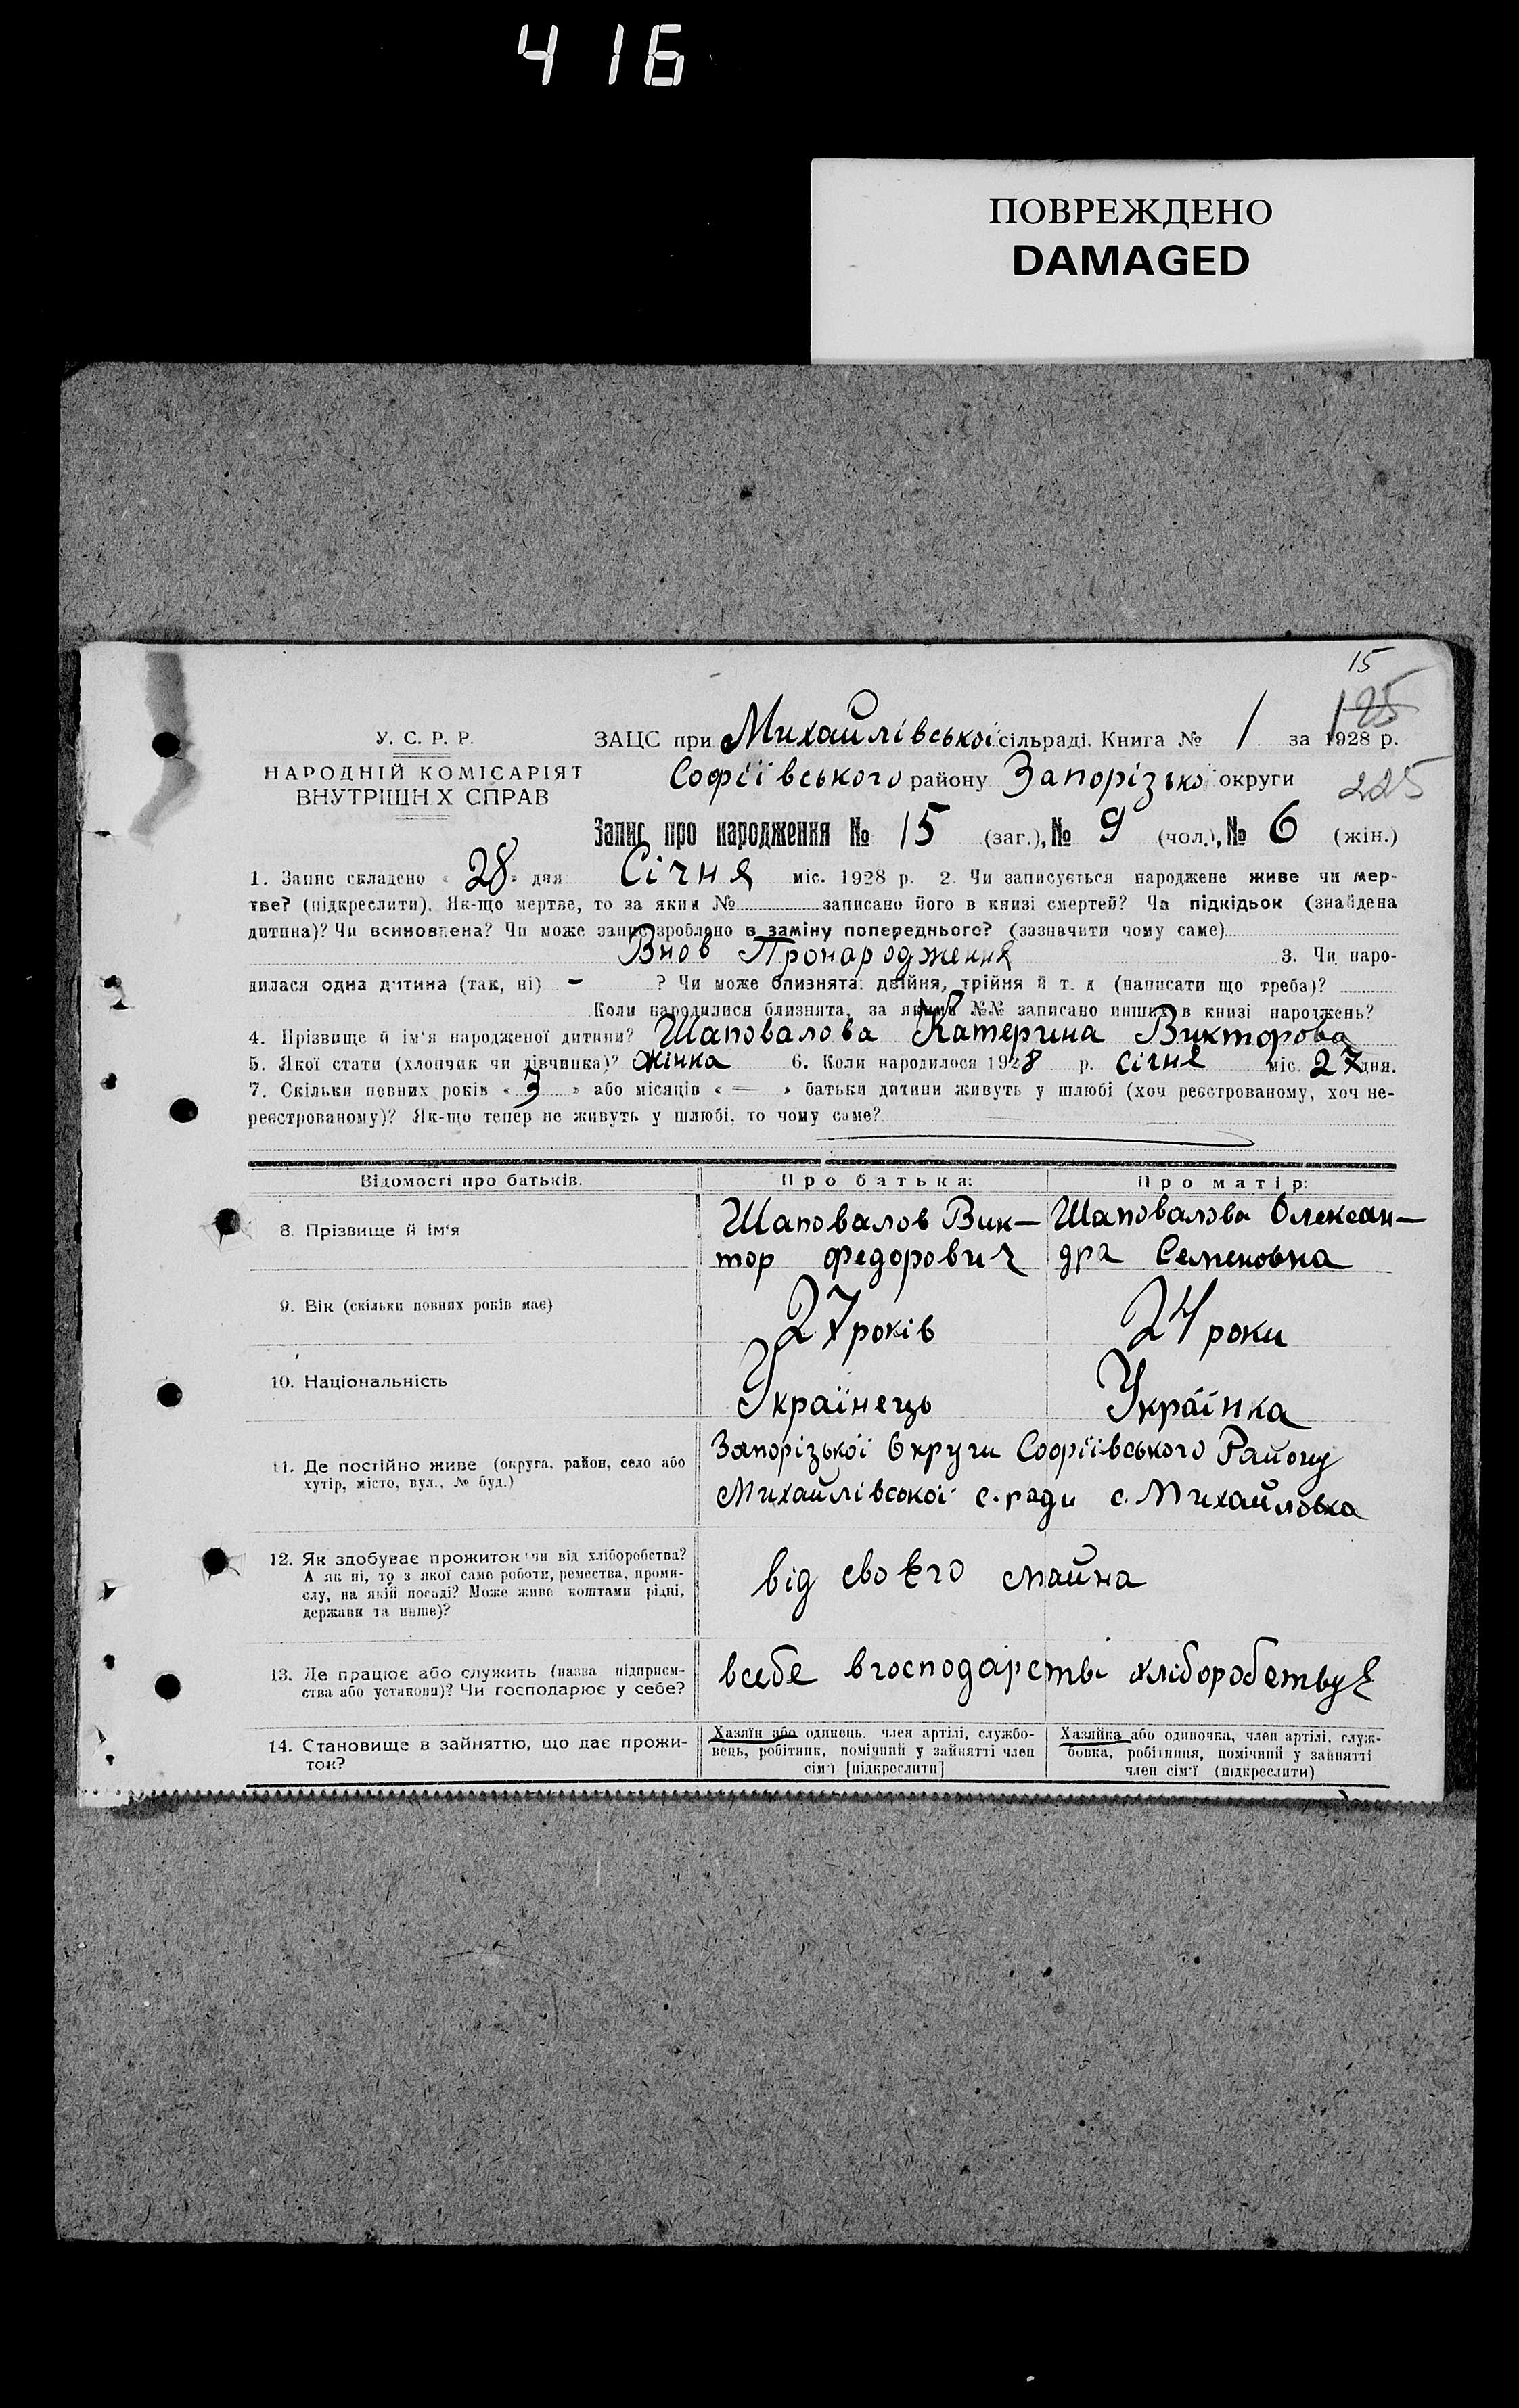 416
ПОВРЕЖДЕНО
DAMAGED
15
125
У. С. Р. Р.
НАРОДНІЙ КОМІСАРІЯТ
ВНУТРІШН Х СПРАВ
ЗАЦС при Михайлівської сільраді. Книга № 1 за 1928 р.
Софіївського району Запорізької округи
225
Запис про народження № 15 (заг.), № 9 (чол.), № 6 (жін.)
1. Запис складено « 28 » дня Січня міс. 1928 р. 2. Чи записується народжене живе чи мер-
тве? (підкреслити). Як-що мертве, то за яким № записано його в книзі смертей? Чи підкідьок (знайдена
дитина)? Чи всиновлена? Чи може запис зроблено в заміну попереднього? (зазначити чому саме)
Внов Пронародження 3. Чи наро-
дилася одна дитина (так, ні) – ? Чи може близнята: двійня, трійня й т. д (написати що треба)?
Коли народилися близнята, за якими №№ записано инших в книзі народжень?
4. Прізвище й ім'я народженої дитини? Шаповалова Катерина Викторова
5. Якої стати (хлопчик чи дівчинка)? жінка 6. Коли народилося 1928 р. січня міс. 27 дня.
7. Скільки повних років « 3 » або місяців « — » батьки дитини живуть у шлюбі (хоч реєстрованому, хоч не-
реєстрованому)? Як-що тепер не живуть у шлюбі, то чому саме?
Відомості про батьків. Про батька: Про матір:
8. Прізвище й ім'я
Шаповалов Вик–
тор федорович
Шаповалова Олексан–
дра Семеновна
9. Вік (скільки повних років має) 27 років 24 роки
10. Національність Українець Українка
11. Де постійно живе (округа, район, село або
хутір, місто, вул., № буд.)
Запорізької Округи Софіївського Району
Михайлівської с. ради с. Михайловка
12. Як здобуває прожиток (чи від хліборобства?
А як ні, то з якої саме роботи, ремества, проми-
слу, на якій посаді? Може живе коштами рідні,
держави та инше)?
від своєго майна
13. Де працює або служить (назва підприєм-
ства або установи)? Чи господарює у себе?
всебе вгосподарстві хліборобствує
14. Становище в зайняттю, що дає прожи-
ток?
Хазяїн або одинець, член артілі, службо-
вець, робітник, помічний у зайнятті член
сім'ї [підкреслити]
Хазяйка або одиночка, член артілі, служ-
бовка, робітниця, помічний у зайнятті
член сім'ї (підкреслити)